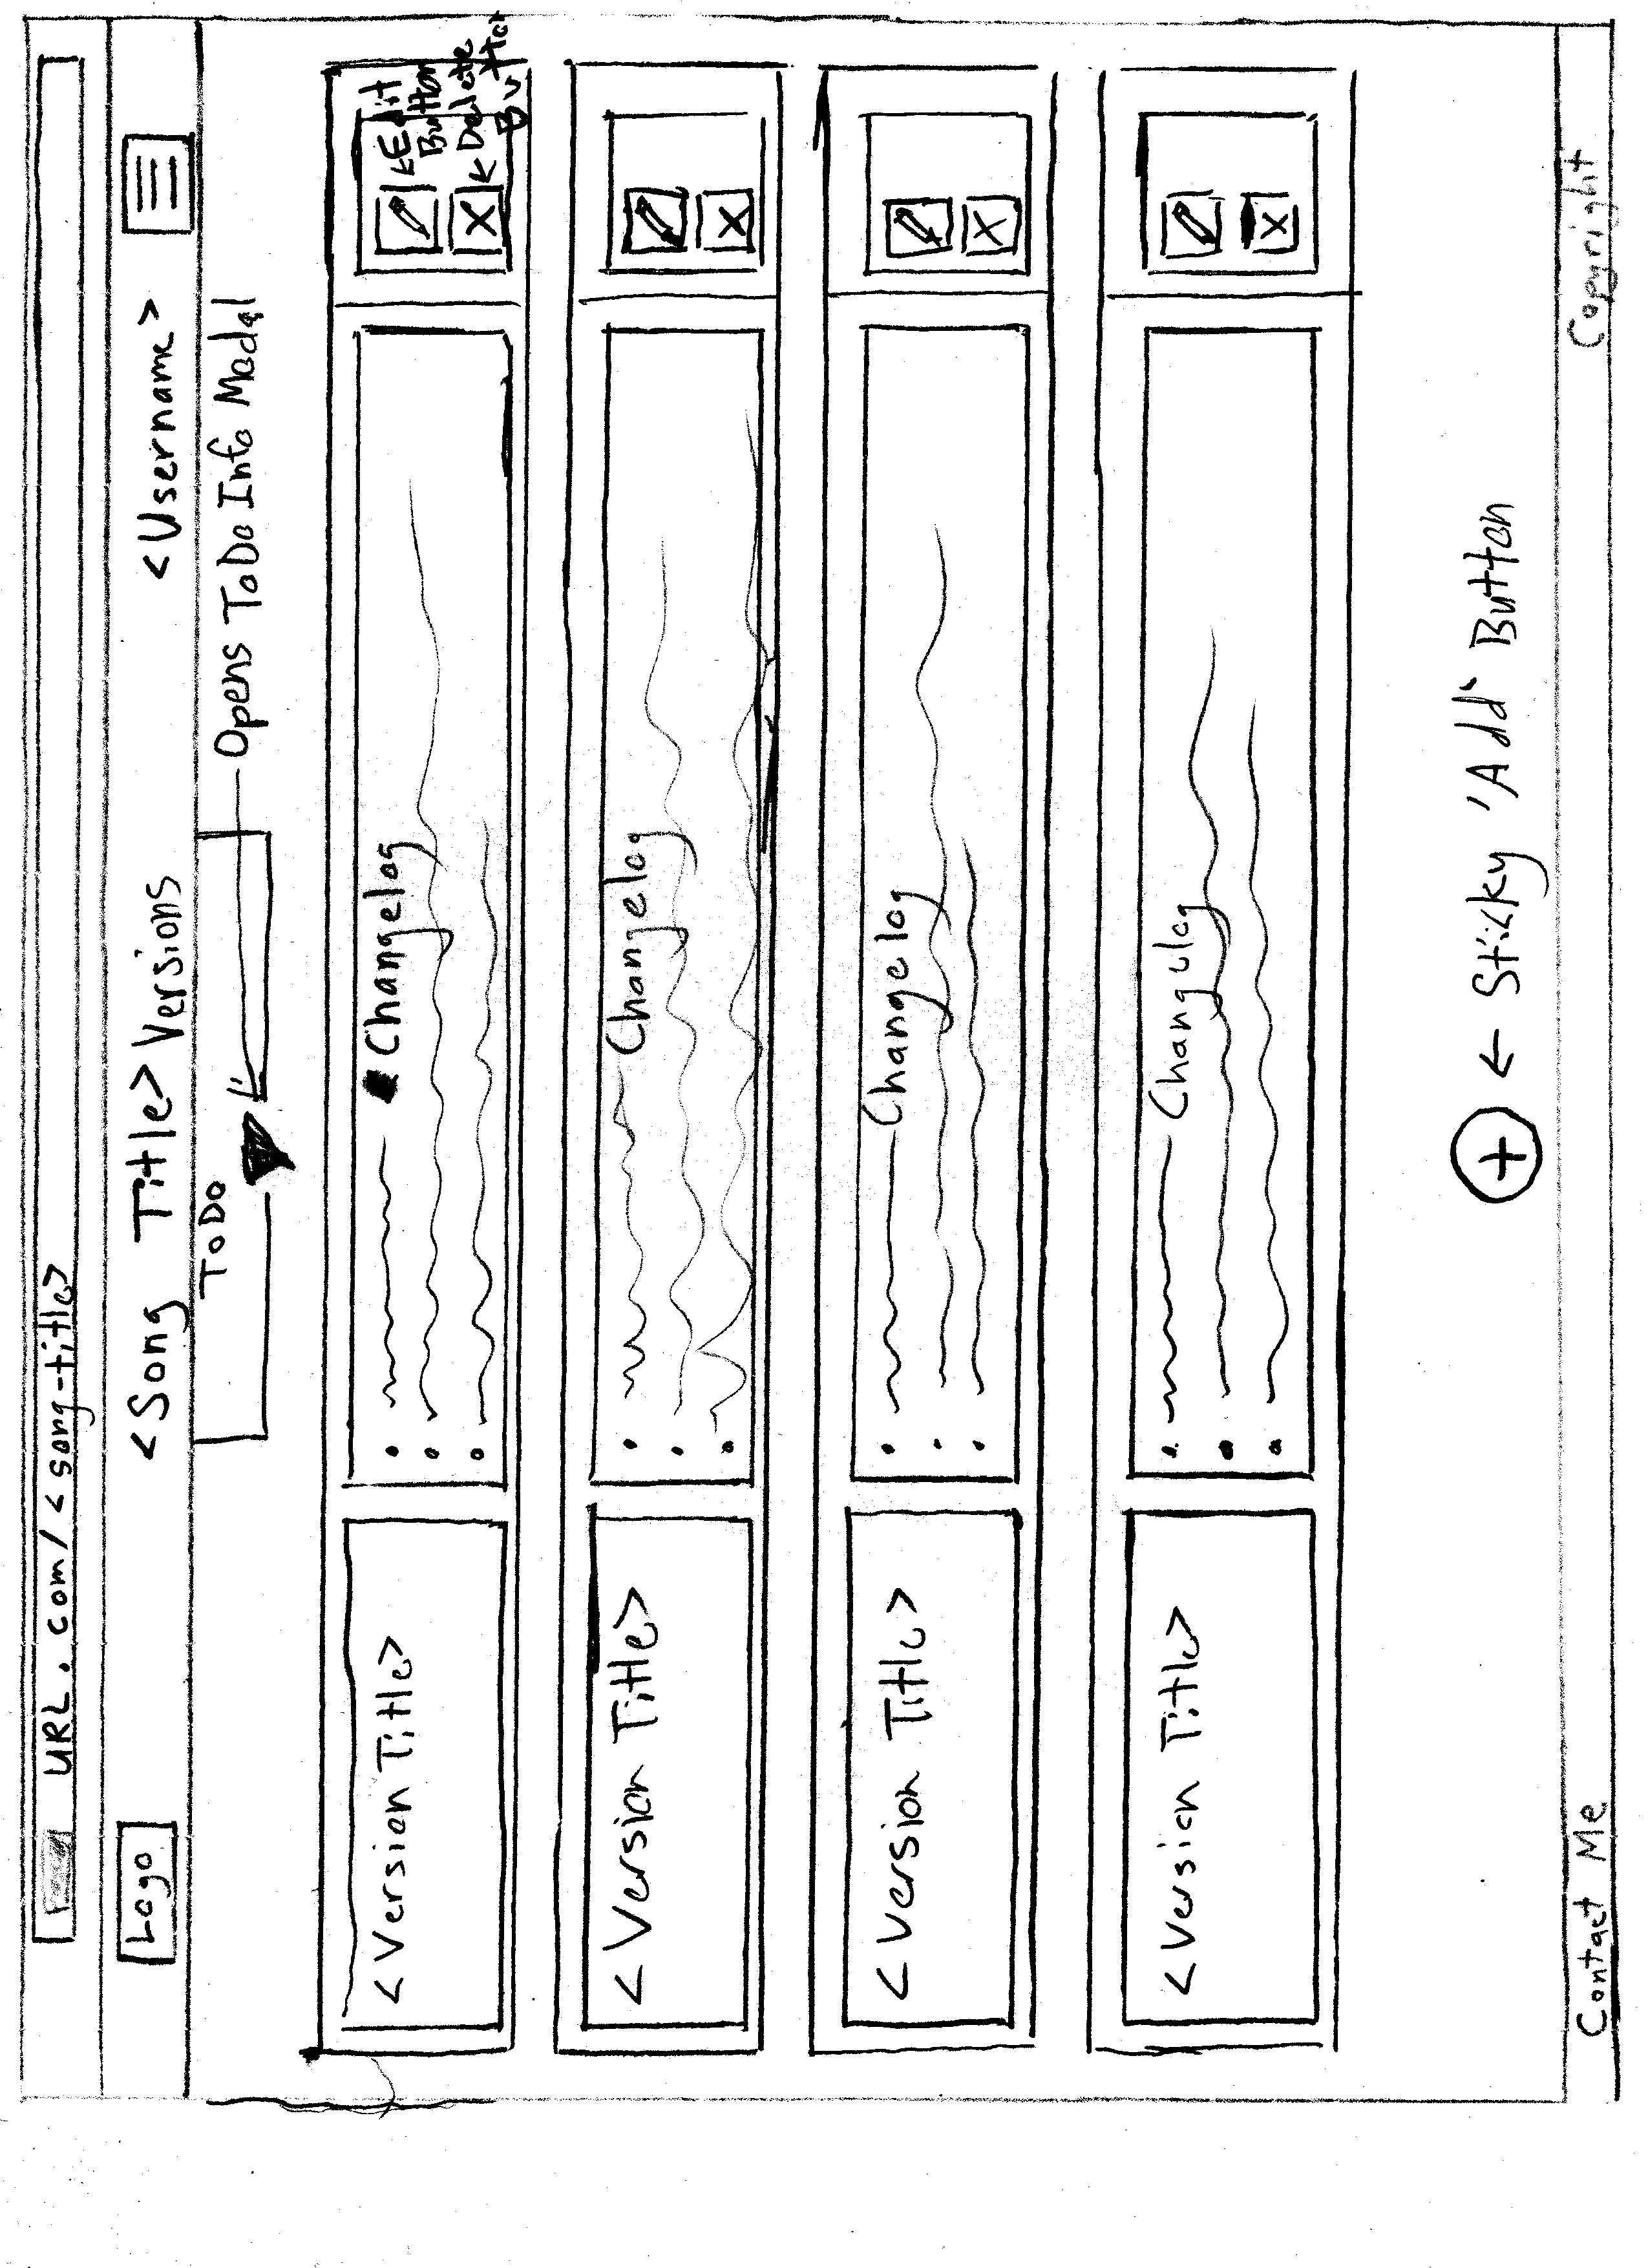 URL.com/<song-title>
Logo
<Song Title> Versions
<Username>
ToDo
Opens ToDo Info Modal
<Version Title>
Changelog
Edit
Button
Delete
Button
<Version Title>
Changelog
<Version Title>
Changelog
<Version Title>
Changelog
+ ← Sticky 'Add' Button
Contact Me
Copyright